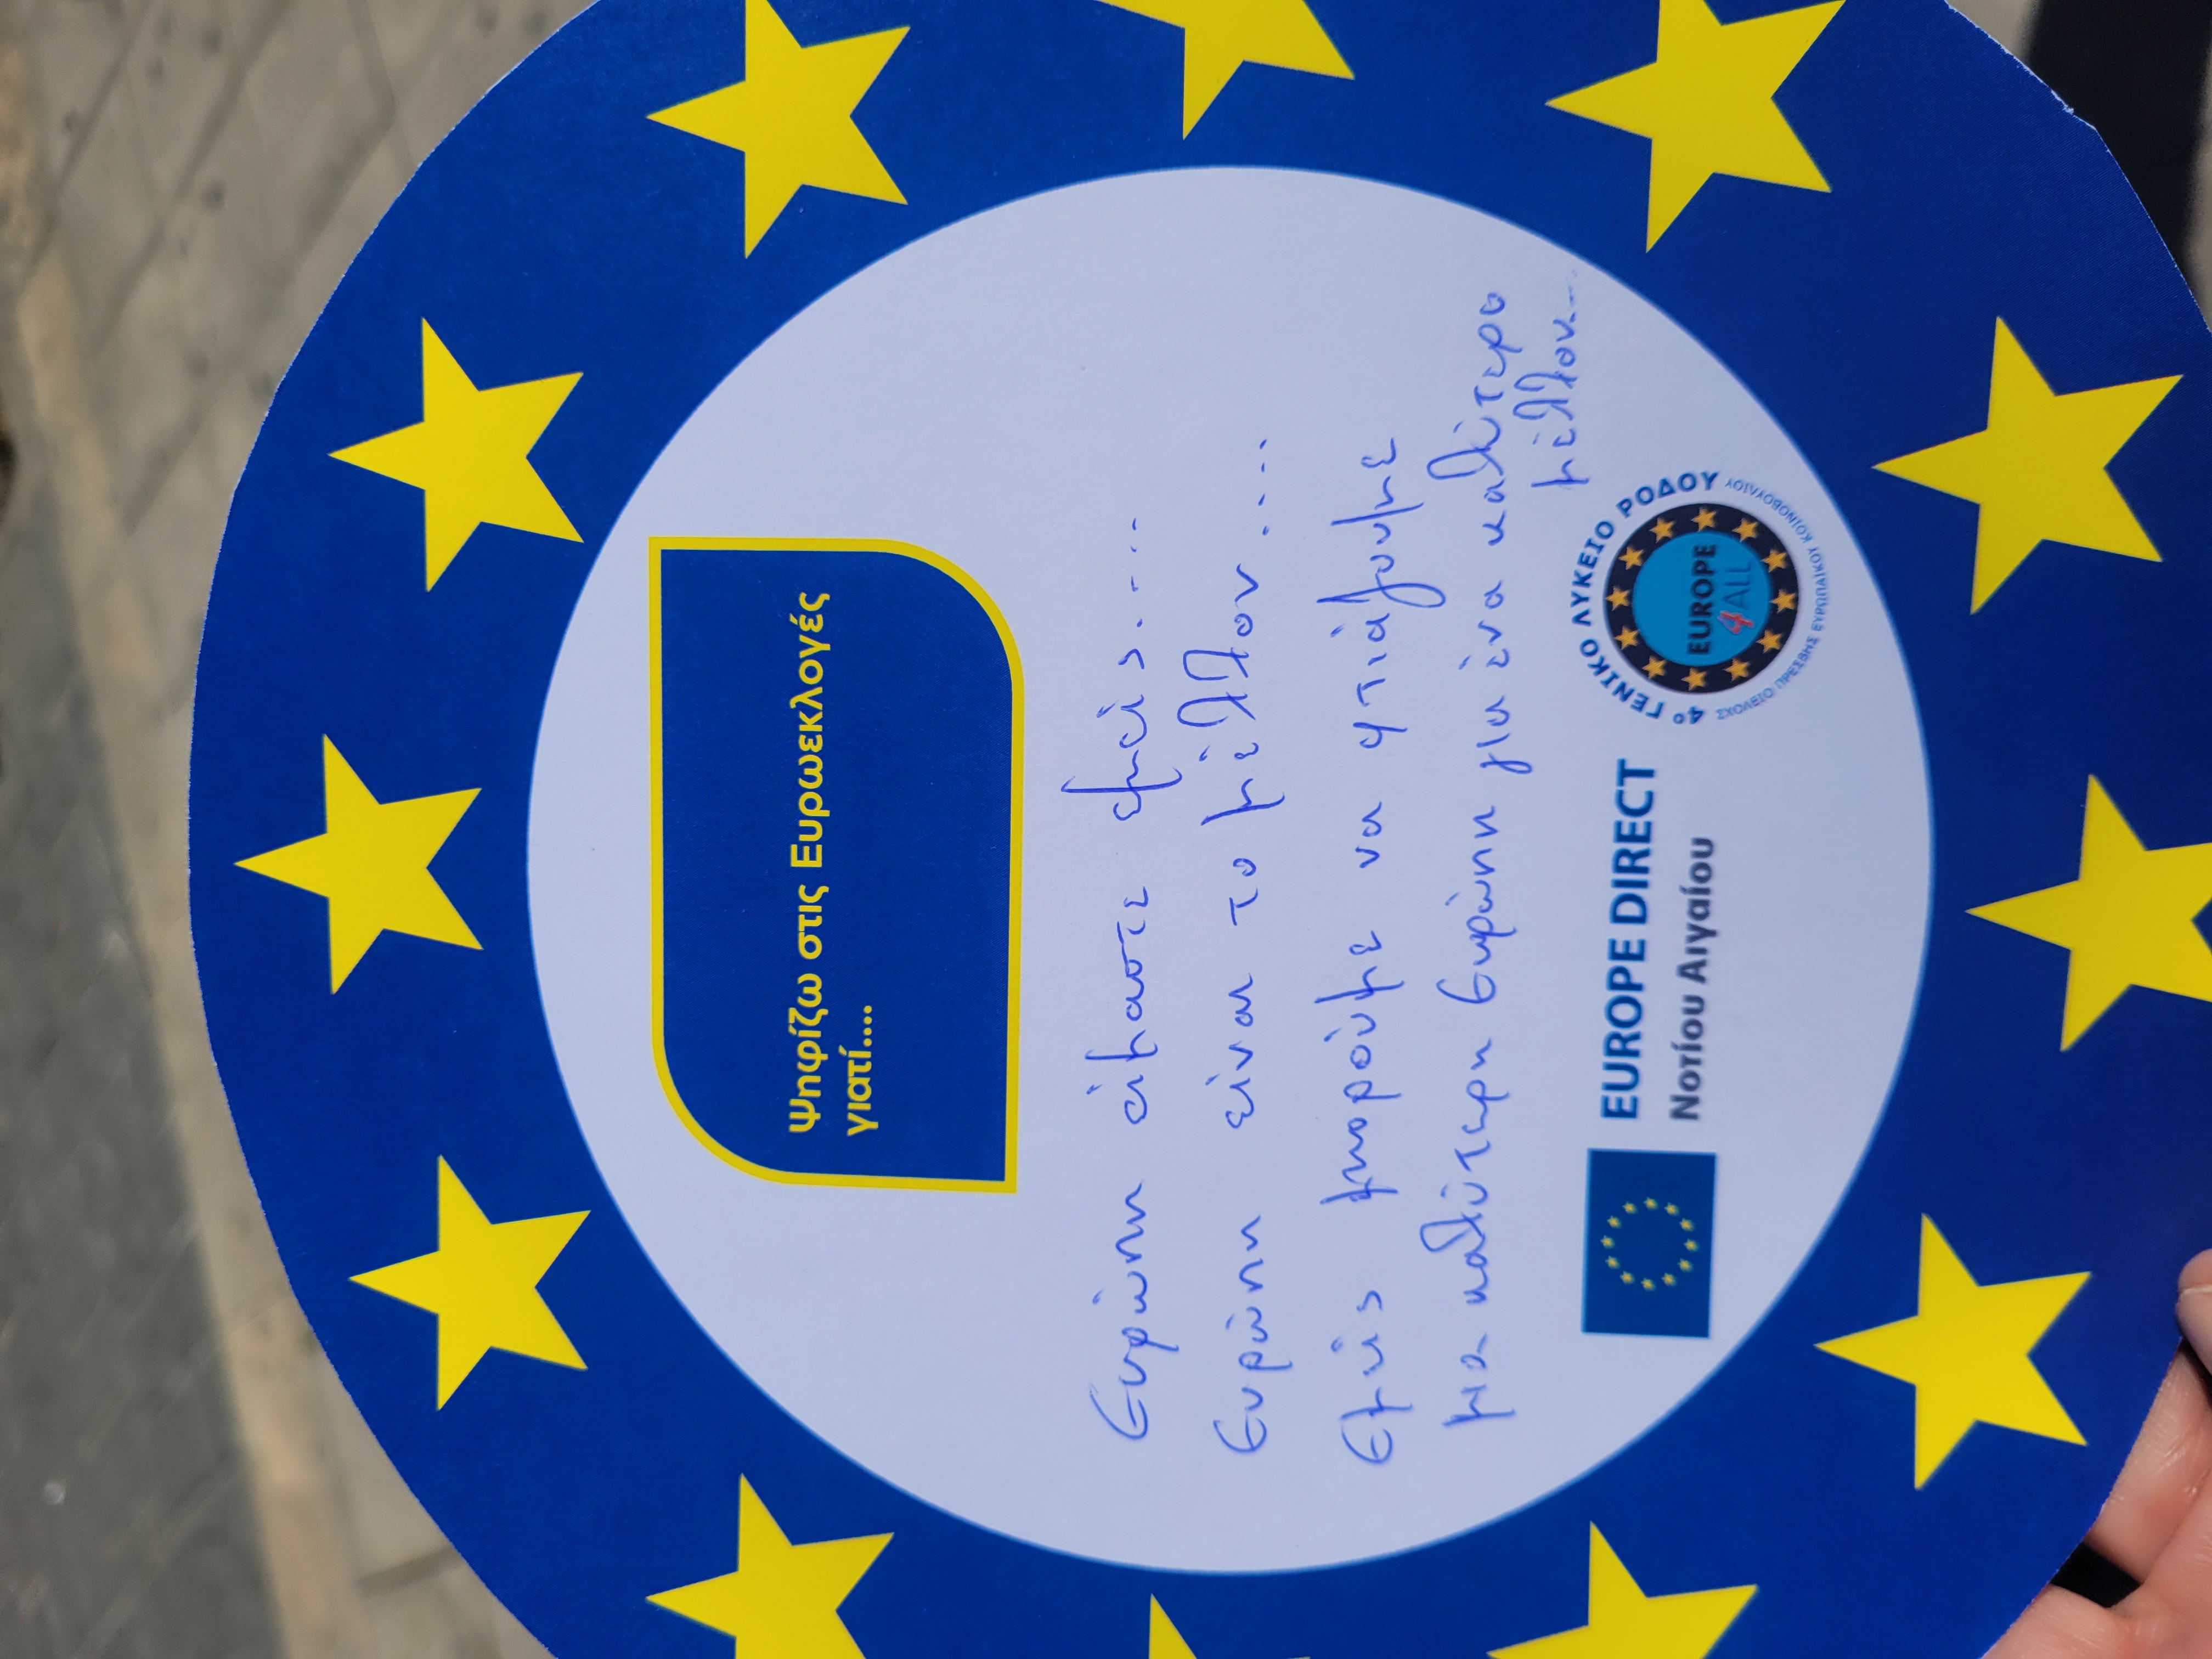 Ψηφίζω στις Ευρωεκλογές
γιατί....
Ευρώπη είμαστε εμείς.....
Ευρώπη είναι το μέλλον.....
Εμείς μπορούμε να φτιάξουμε
μια καλύτερη Ευρώπη για ένα καλύτερο
μέλλον...
EUROPE DIRECT
Νοτίου Αιγαίου
4ο ΓΕΝΙΚΟ ΛΥΚΕΙΟ ΡΟΔΟΥ
EUROPE
4ALL
ΣΧΟΛΕΙΟ ΠΡΕΣΒΗΣ ΕΥΡΩΠΑΪΚΟΥ ΚΟΙΝΟΒΟΥΛΙΟΥ